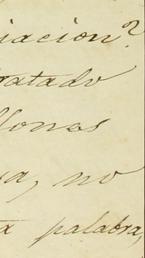 iacion?
ratado
llones
a, no
a palabra,